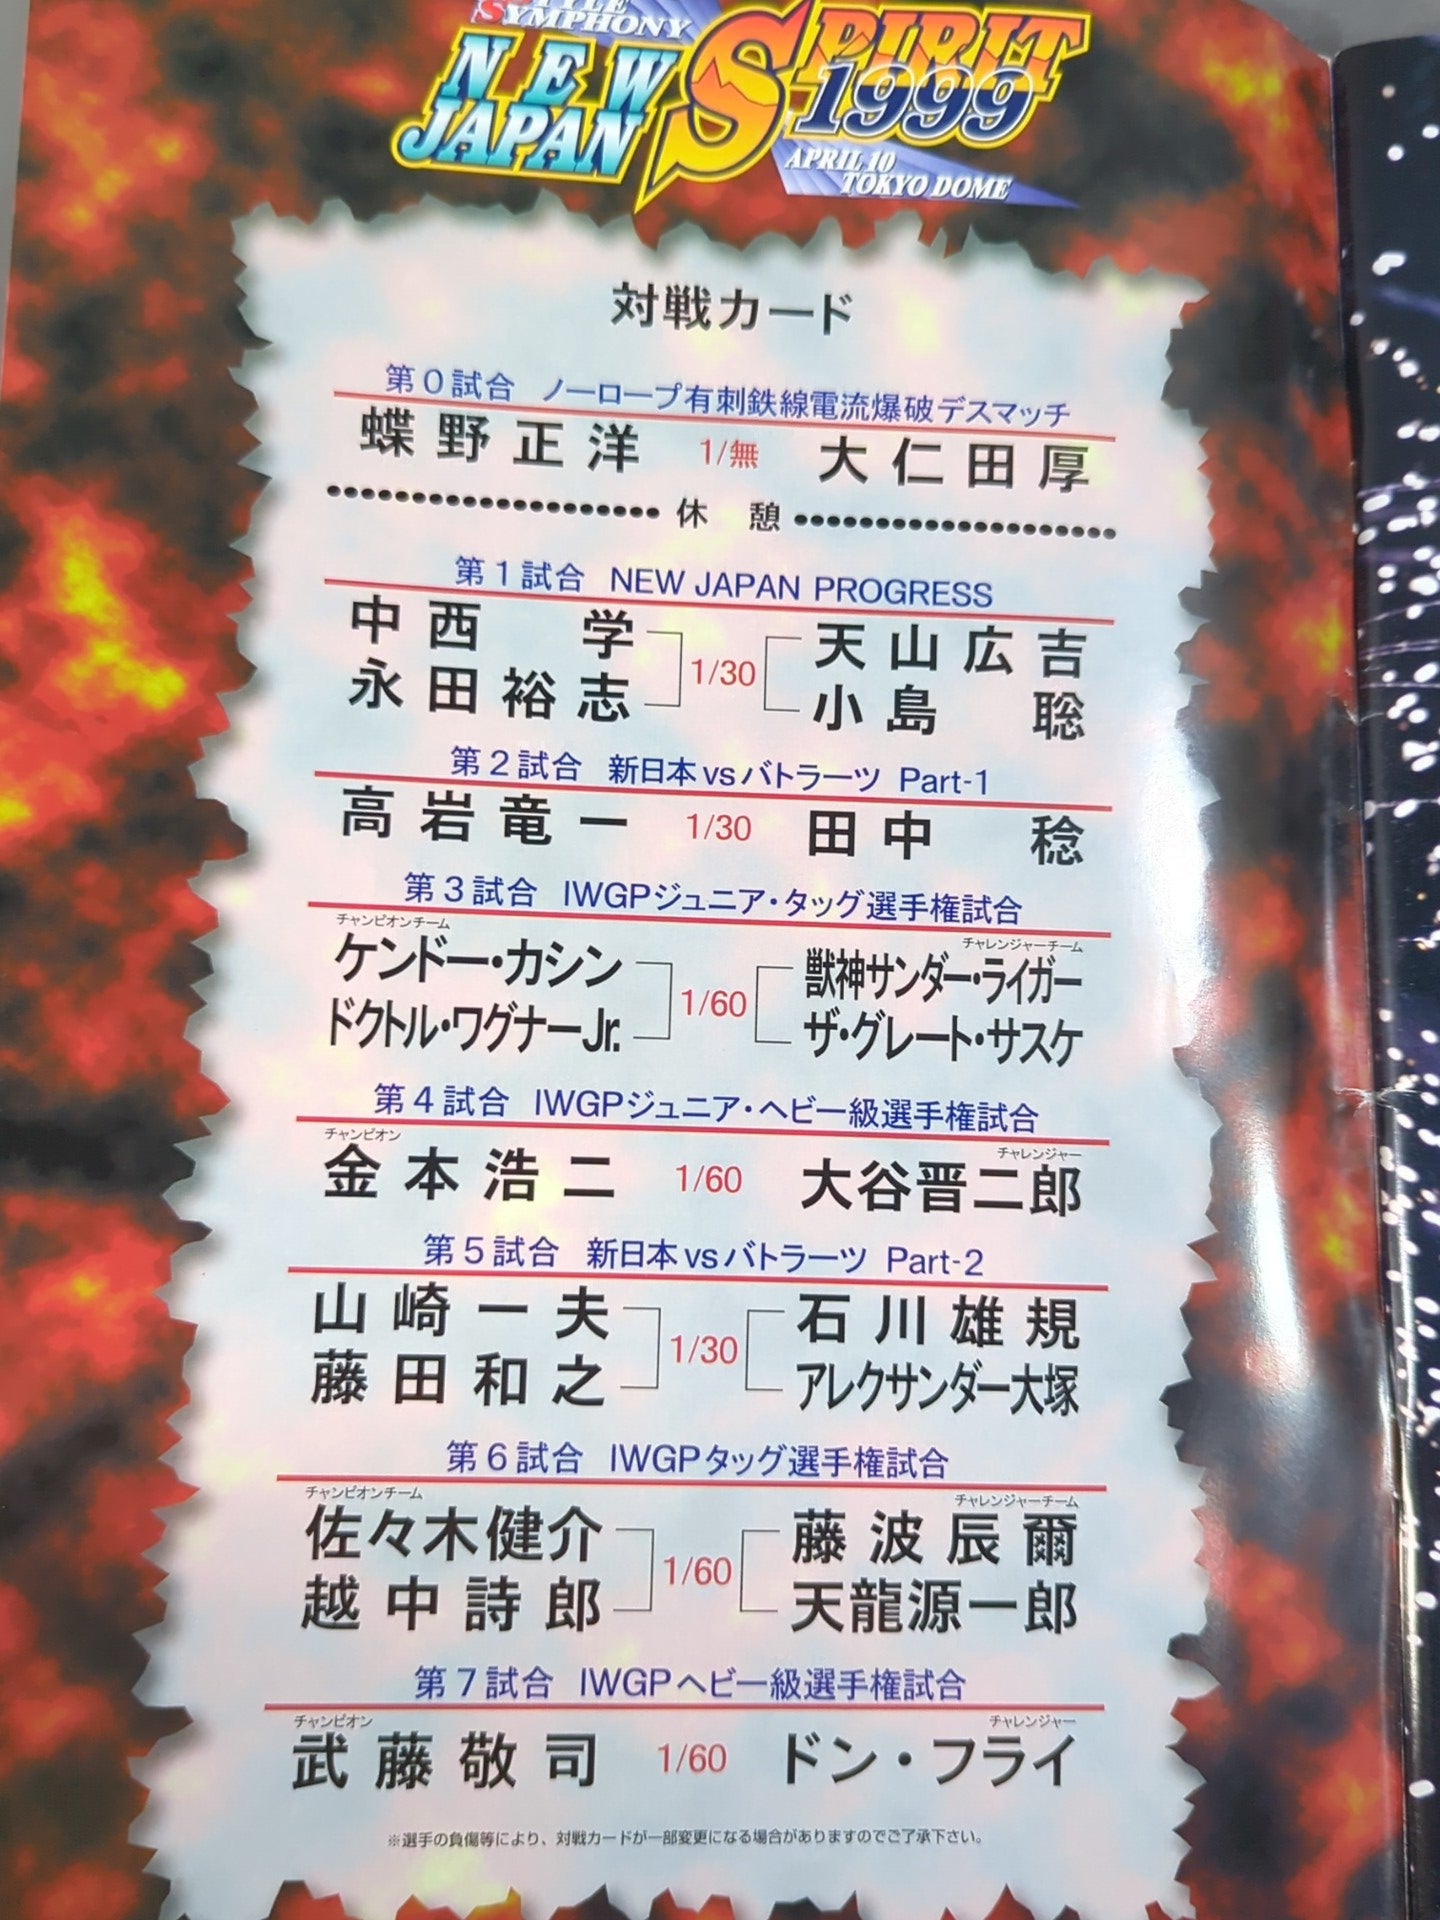 STYLE
SYMPHONY
NEW
JAPAN
SPIRIT
1999
APRIL 10
TOKYO DOME
対戦カード
第0試合 ノーロープ有刺鉄線電流爆破デスマッチ
蝶野正洋 1/無 大仁田厚
休憩
第1試合 NEW JAPAN PROGRESS
中西学 天山広吉
1/30
永田裕志 小島聡
第2試合 新日本vsバトラーツ Part-1
高岩竜一 1/30 田中稔
第3試合 IWGPジュニア・タッグ選手権試合
チャンピオンチーム チャレンジャーチーム
ケンドー・カシン 獣神サンダー・ライガー
1/60
ドクトル・ワグナーJr. ザ・グレート・サスケ
第4試合 IWGPジュニア・ヘビー級選手権試合
チャンピオン チャレンジャー
金本浩二 1/60 大谷晋二郎
第5試合 新日本vsバトラーツ Part-2
山崎一夫 石川雄規
1/30
藤田和之 アレクサンダー大塚
第6試合 IWGPタッグ選手権試合
チャンピオンチーム チャレンジャーチーム
佐々木健介 藤波辰爾
1/60
越中詩郎 天龍源一郎
第7試合 IWGPヘビー級選手権試合
チャンピオン チャレンジャー
武藤敬司 1/60 ドン・フライ
※選手の負傷等により、対戦カードが一部変更になる場合がありますのでご了承下さい。